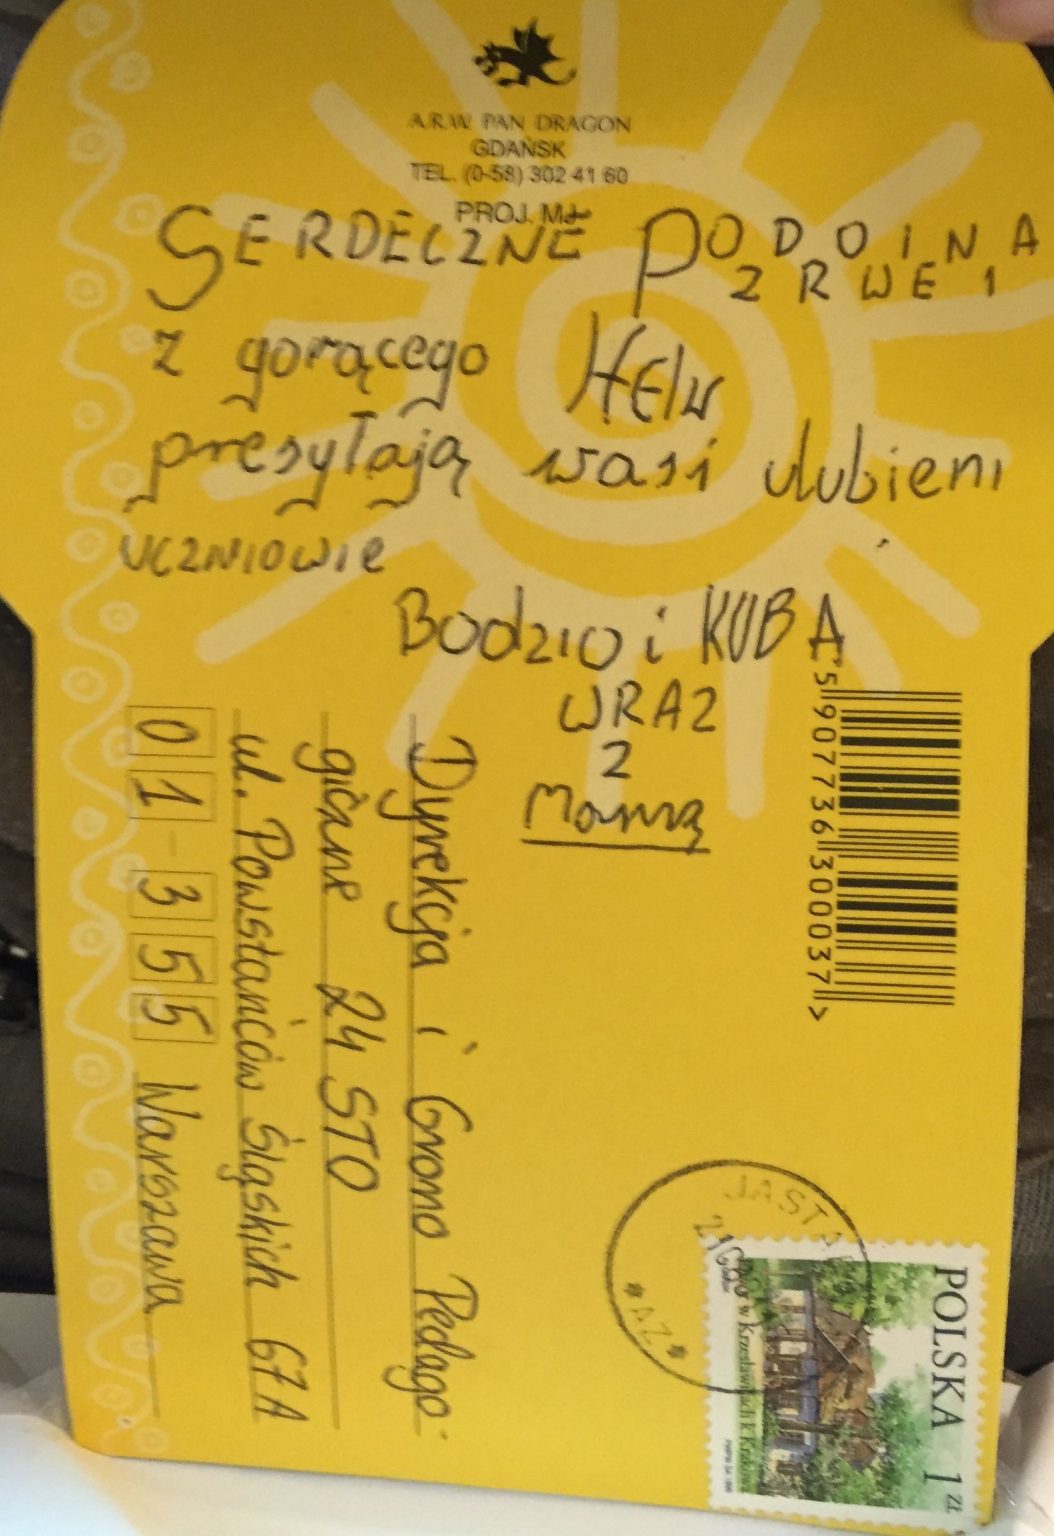 A.R.W. PAN DRAGON
GDAŃSK
TEL. (0-58) 302 41 60
PROJ. MŁ
SERDECZNE PODOINA
ZRWENI
z gorącego HElu
presyłają wasi ulubieni
uczniowie
Bodzio i KUBA
WRAZ
Z
Mamą
5 907736 300037 >
Dyrekcja i Grono Pedago-
giczne 24 STO
ul. Powstańców Śląskich 67A
01-355 Warszawa
POLSKA 1 ZŁ
Dwór w Krzesławicach k. Krakowa
JASTA
* AZ *